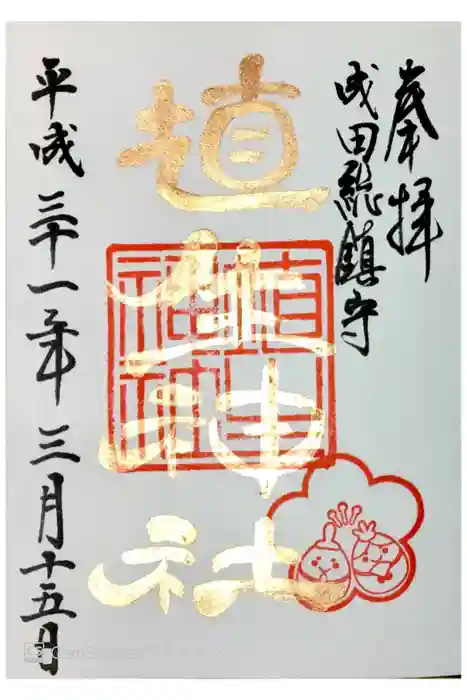 奉拝
成田総鎮守
埴生神社
埴生神社
平成三十一年三月十五日
CamScanner